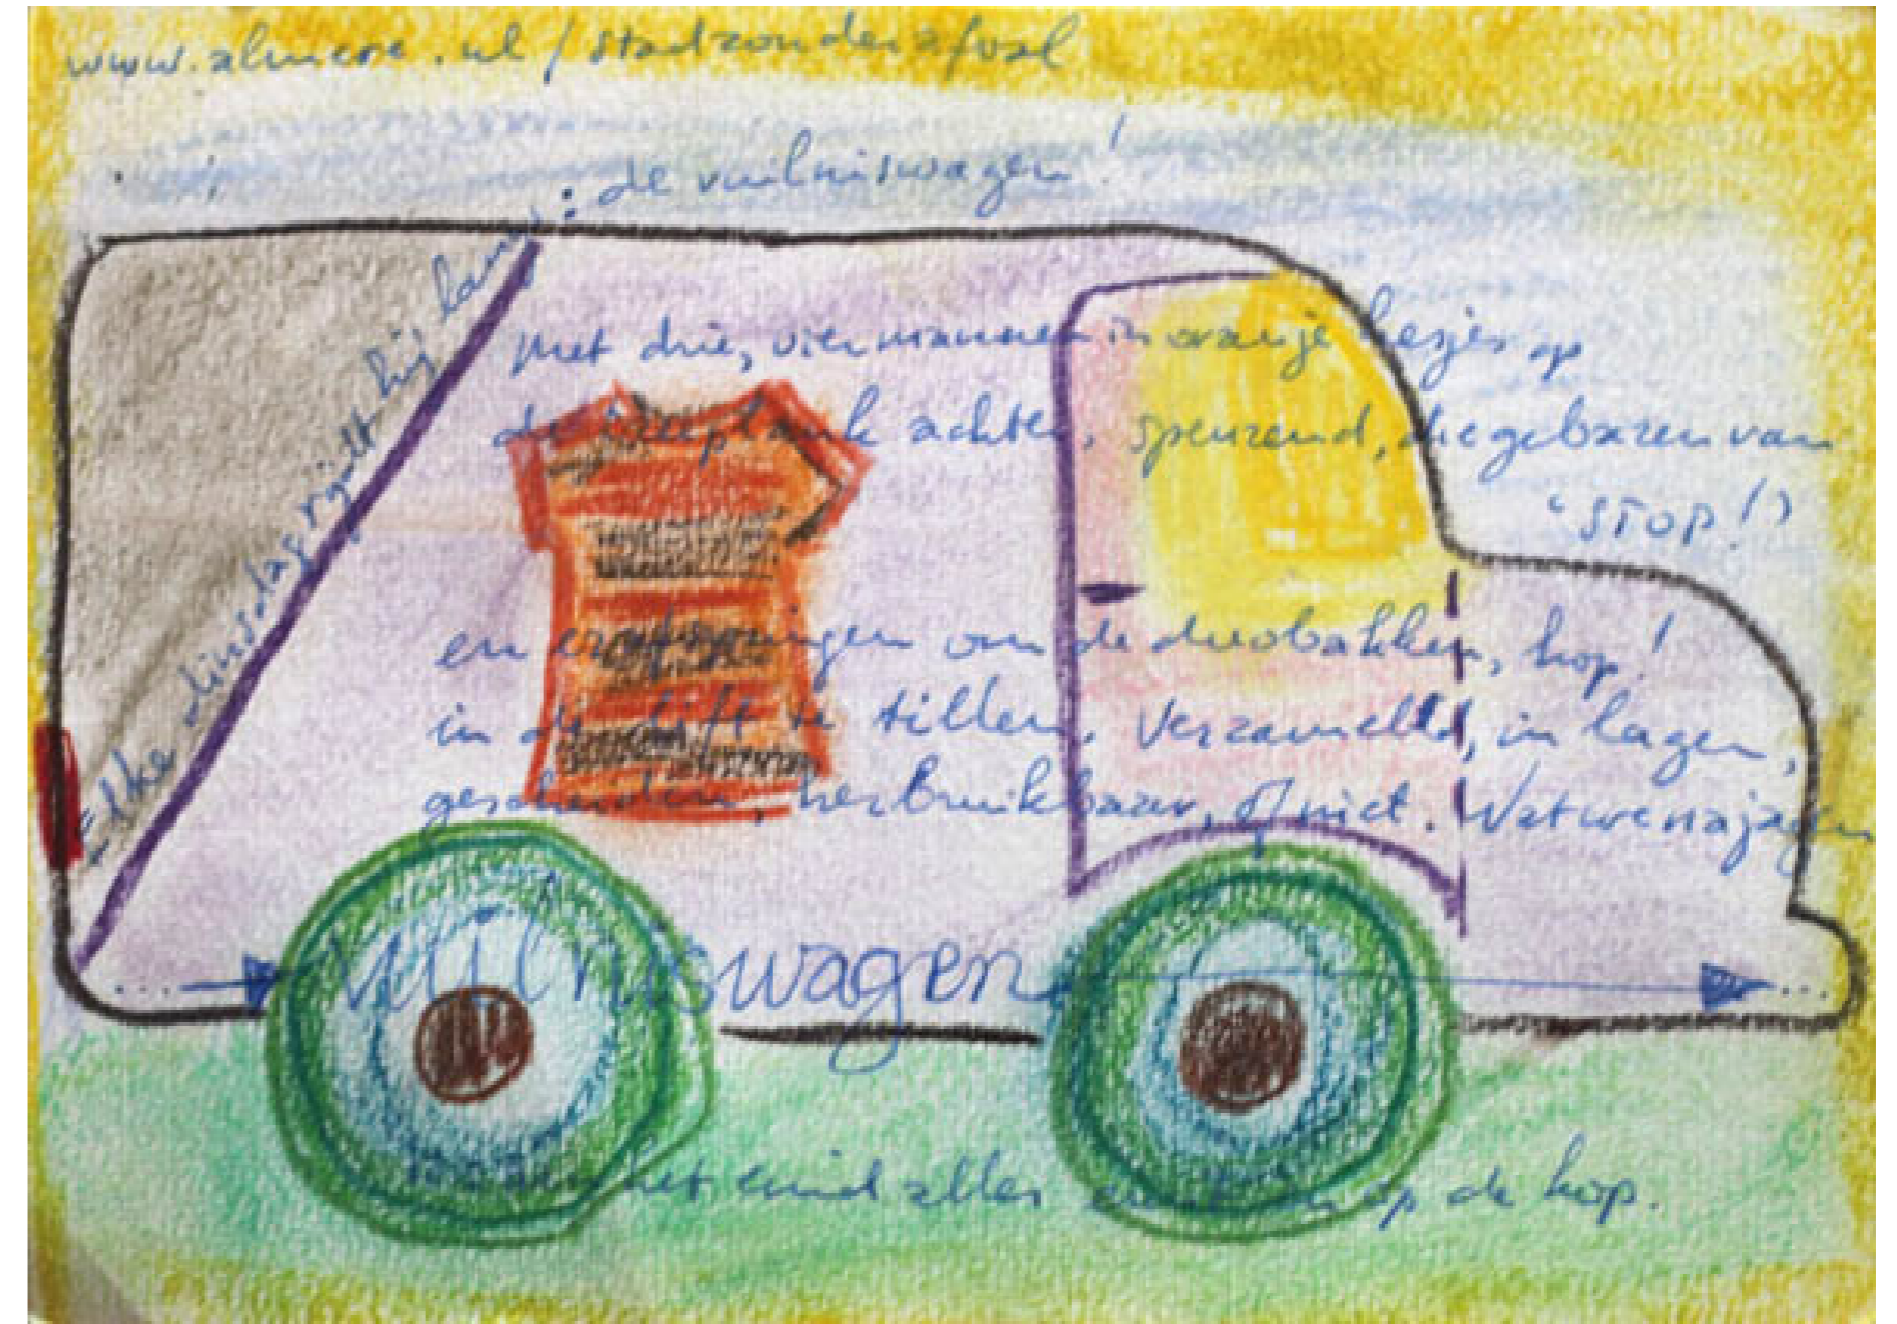 www.almere.nl/stadzonderafval
Elke dinsdag rijdt hij langs
: de vuilniswagen!
Met drie, vier mannen in oranje hesjes op
de treeplank achter, speurend, die gebaren van
'STOP!'
en eraf springen om de duobakken, hop!
in de lift te tillen. Verzameld, in lagen,
gescheiden, herbruikbaar, of niet. Wat we najagen
... vuilniswagen ...
het eind alles op de kop.